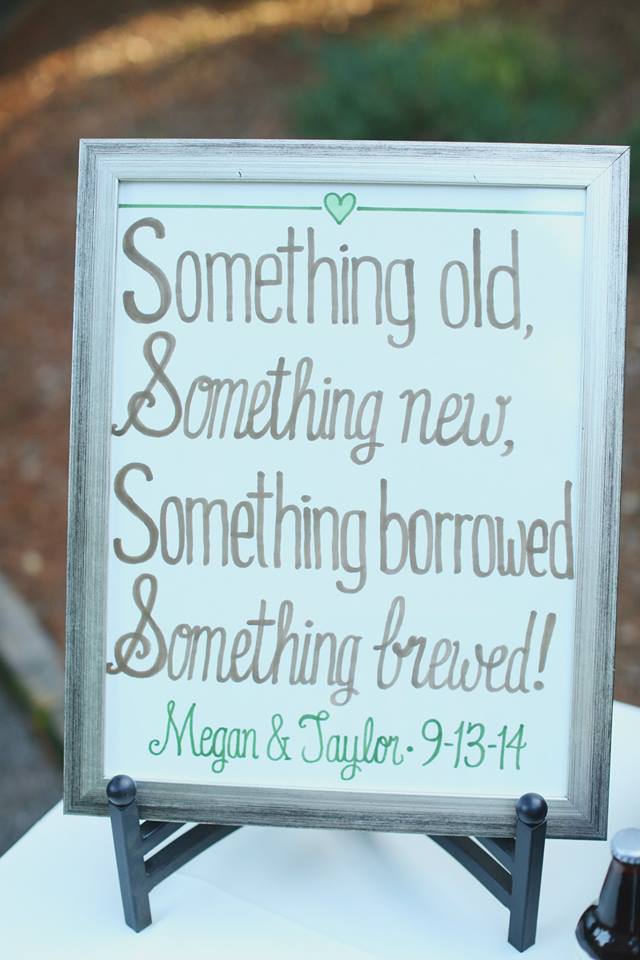 Something old,
Something new,
Something borrowed
Something brewed!
Megan & Taylor · 9-13-14